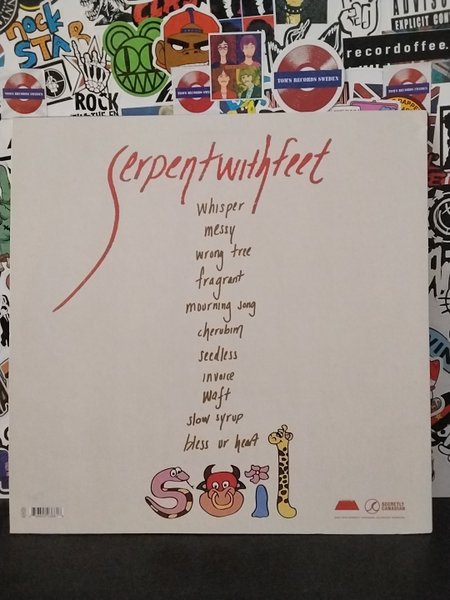 rock
STAR
ROCK
TOM'S RECORDS SWEDEN
EXPLICIT CON
recordoffee.
TOM'S RECORDS SWEDEN
TOM'S RECORDS SWEDEN
TOM'S RECORDS SWEDEN
serpentwithfeet
whisper
messy
wrong tree
fragrant
mourning song
cherubim
seedless
invoice
waft
slow syrup
bless ur heart
soil
SECRETLY
CANADIAN